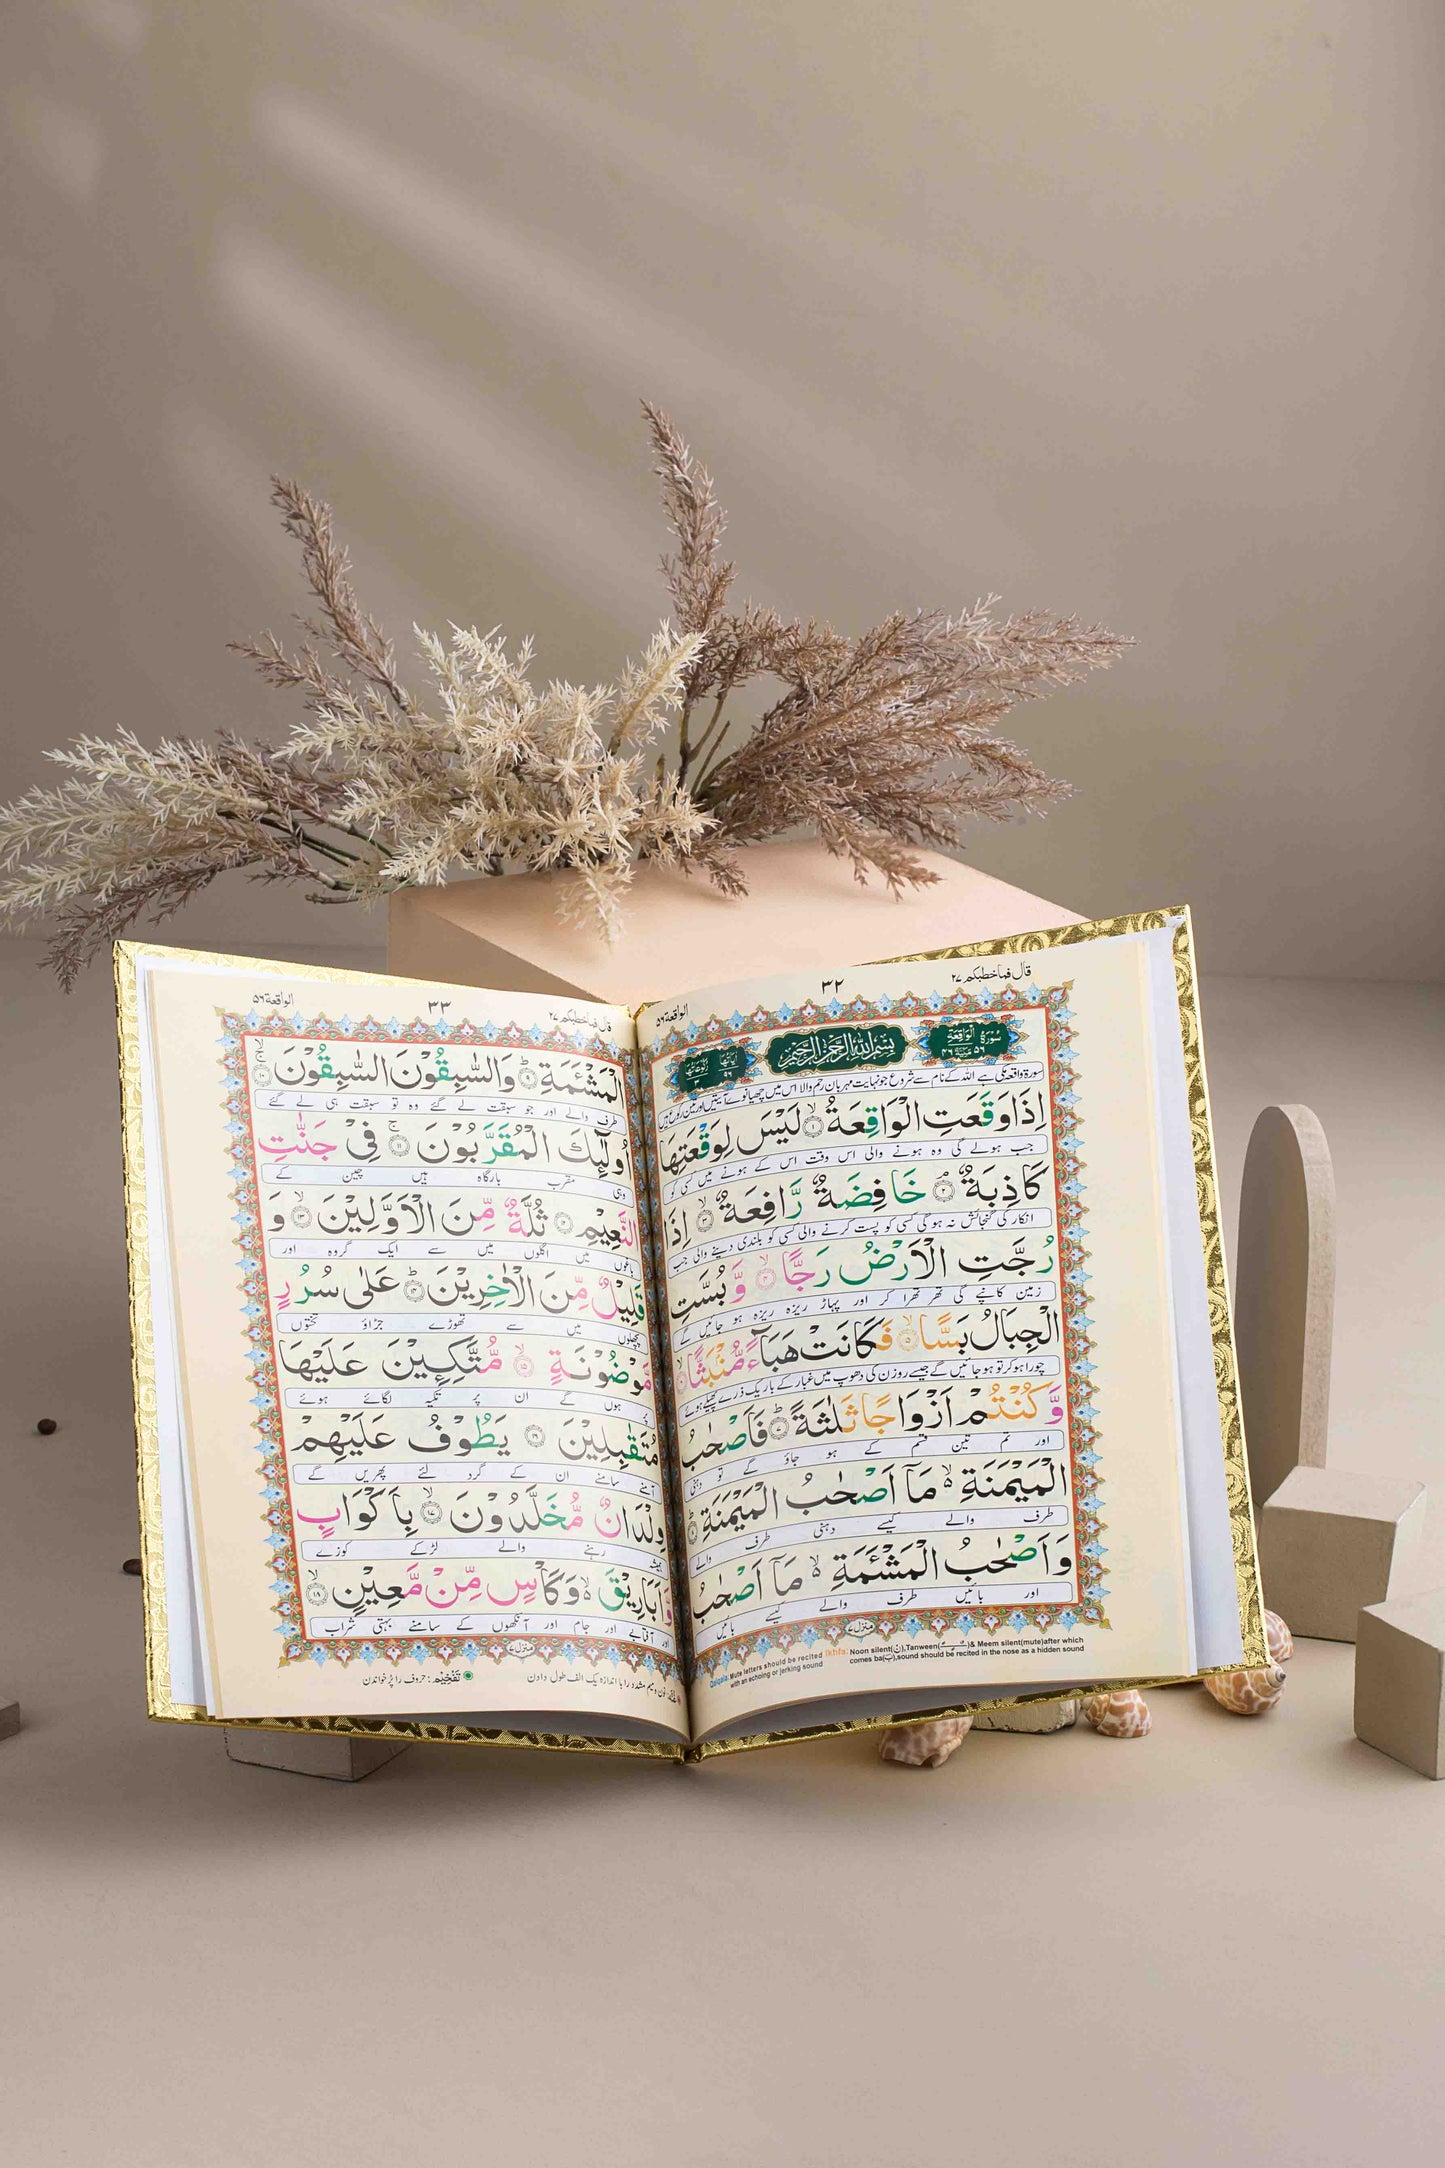 الواقعة ٥٦
٣٢
قال فماخطبكم ٢٧
سورة الواقعة ٥٦ مكية ٤٦
بسم الله الرحمن الرحيم
اٰیاتها ٩٦
رکوعاتها ٣
سورۃ واقعہ مکی ہے اللہ کے نام سے شروع جو نہایت مہربان رحم والا اس میں چھیانوے آیتیں اور تین رکوع ہیں
اِذَا وَقَعَتِ الْوَاقِعَةُ ۙ﴿١﴾ لَيْسَ لِوَقْعَتِهَا
جب ہولے گی وہ ہونے والی اس وقت اس کے ہونے میں کسی کو
كَاذِبَةٌ ۘ﴿٢﴾ خَافِضَةٌ رَّافِعَةٌ ۙ﴿٣﴾ اِذَا
انکار کی گنجائش نہ ہوگی کسی کو پست کرنے والی کسی کو بلندی دینے والی جب
رُجَّتِ الْاَرْضُ رَجًّا ۙ﴿٤﴾ وَّ بُسَّتِ
زمین کانپے گی تھر تھرا کر اور پہاڑ ریزہ ریزہ ہو جائیں گے
الْجِبَالُ بَسًّا ۙ﴿٥﴾ فَكَانَتْ هَبَآءً مُّنْۢبَثًّا ۙ﴿٦﴾
چورا ہوکر تو ہو جائیں گے جیسے روزن کی دھوپ میں غبار کے باریک ذرے پھیلے ہوئے
وَّ كُنْتُمْ اَزْوَاجًا ثَلٰثَةً ؕ﴿٧﴾ فَاَصْحٰبُ
اور تم تین قسم کے ہو جاؤ گے تو دہنی
الْمَيْمَنَةِ ۙ۬ مَاۤ اَصْحٰبُ الْمَيْمَنَةِ ؕ﴿٨﴾
طرف والے کیسے دہنی طرف والے
وَ اَصْحٰبُ الْمَشْـَٔمَةِ ۙ۬ مَاۤ اَصْحٰبُ
اور بائیں طرف والے کیسے بائیں
منزل ٧
Qalqala: Mute letters should be recited with an echoing or jerking sound
Ikhfa: Noon silent(ن),Tanween & Meem silent(mute)after which comes ba(ب),sound should be recited in the nose as a hidden sound
الواقعة ٥٦
٣٣
قال فماخطبكم ٢٧
الْمَشْـَٔمَةِ ؕ﴿٩﴾ وَ السّٰبِقُوْنَ السّٰبِقُوْنَ ۚۙ﴿١٠﴾
طرف والے اور جو سبقت لے گئے وہ تو سبقت ہی لے گئے
اُولٰٓئِكَ الْمُقَرَّبُوْنَ ۚ﴿١١﴾ فِيْ جَنّٰتِ
وہی مقرب بارگاہ ہیں چین کے
النَّعِيْمِ ﴿١٢﴾ ثُلَّةٌ مِّنَ الْاَوَّلِيْنَ ۙ﴿١٣﴾ وَ
باغوں میں اگلوں میں سے ایک گروہ اور
قَلِيْلٌ مِّنَ الْاٰخِرِيْنَ ؕ﴿١٤﴾ عَلٰى سُرُرٍ
پچھلوں میں سے تھوڑے جڑاؤ تختوں
مَّوْضُوْنَةٍ ۙ﴿١٥﴾ مُّتَّكِـِٕيْنَ عَلَيْهَا
پر ہوں گے ان پر تکیہ لگائے ہوئے
مُتَقٰبِلِيْنَ ﴿١٦﴾ يَطُوْفُ عَلَيْهِمْ
آمنے سامنے ان کے گرد لئے پھریں گے
وِلْدَانٌ مُّخَلَّدُوْنَ ۙ﴿١٧﴾ بِاَكْوَابٍ
ہمیشہ رہنے والے لڑکے کوزے
وَّ اَبَارِيْقَ ۙ۬ وَ كَاْسٍ مِّنْ مَّعِيْنٍ ۙ﴿١٨﴾
اور آفتابے اور جام اور آنکھوں کے سامنے بہتی شراب
منزل ٧
نون و میم مشدد را با اندازه یک الف طول دادن
تَفْخِيْم: حروف را پُر خواندن